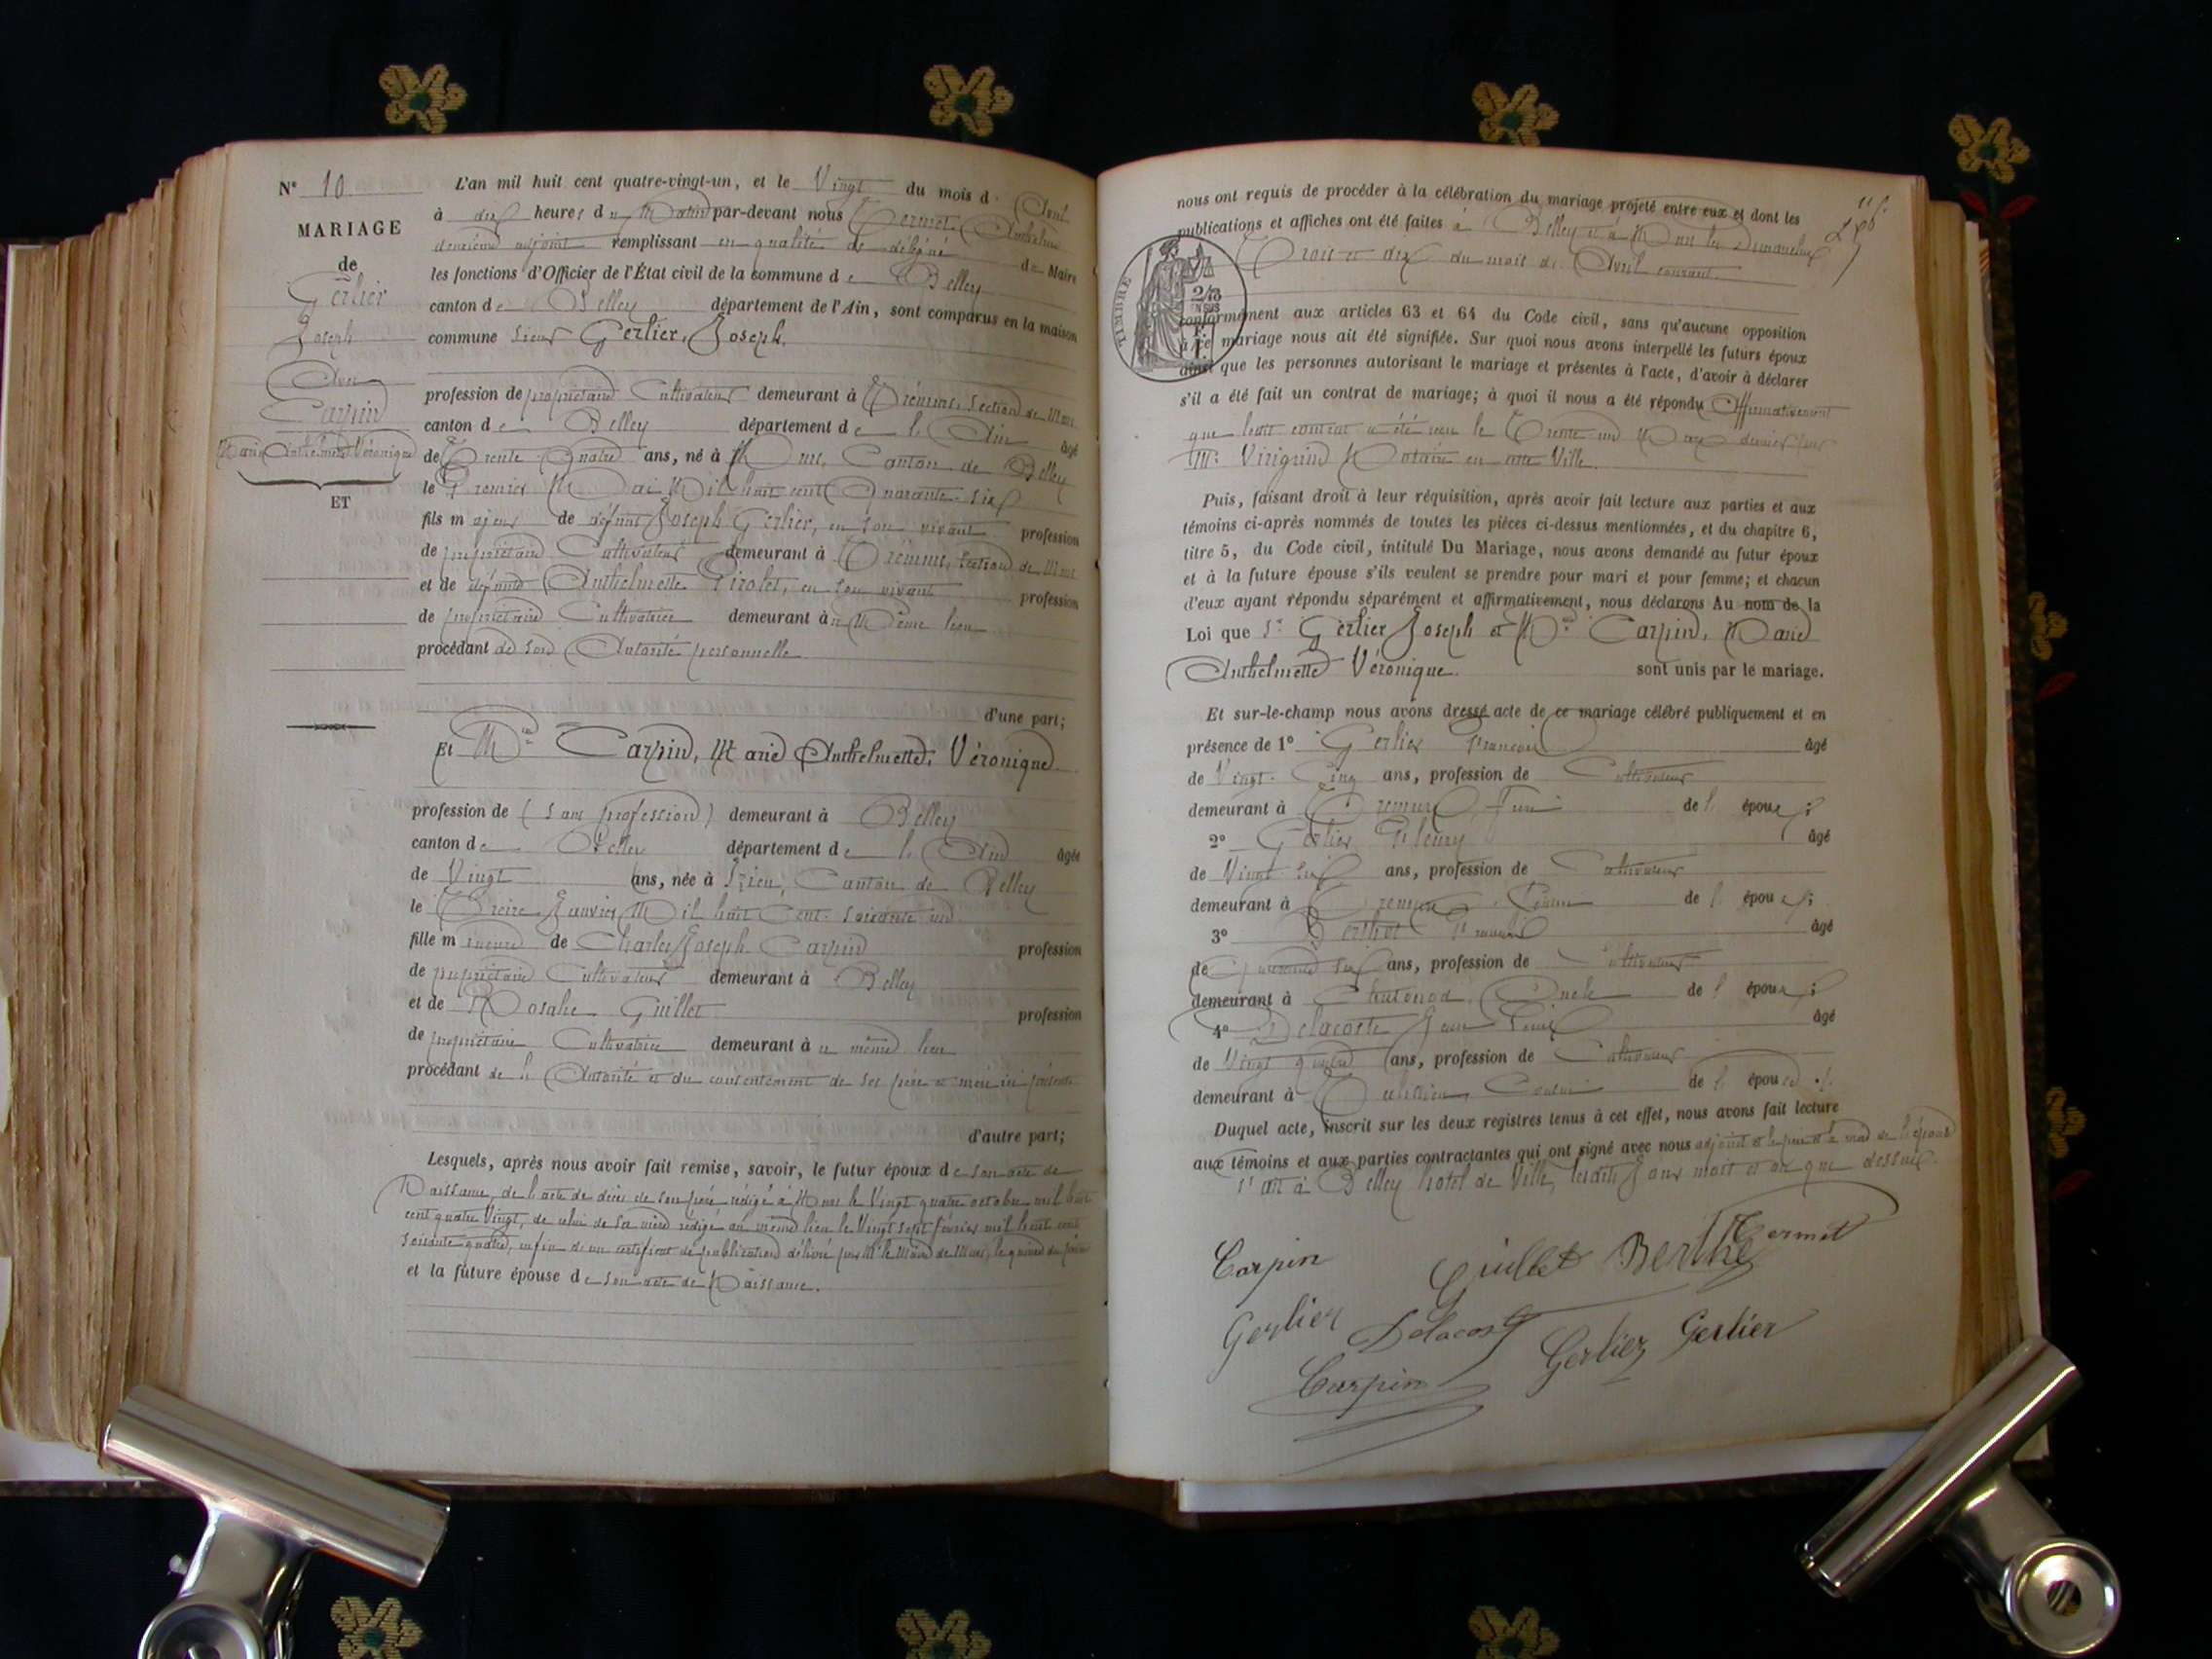 N° 10
MARIAGE
de
Gerlier
Joseph
Avec
Carpin
Marie Anthelmette Véronique
ET
L'an mil huit cent quatre-vingt-un, et le Vingt du mois d' Avril
à dix heures du Matin par-devant nous Anthelme
deuxième adjoint remplissant en qualité de délégué du Maire
les fonctions d'Officier de l'État civil de la commune de Belley
canton de Belley département de l'Ain, sont comparus en la maison
commune sieur Gerlier, Joseph.
profession de propriétaire Cultivateur demeurant à section de Murs
canton de Belley département de l'Ain âgé
de Trente Quatre ans, né à Murs, Canton de Belley
le Premier Mai Mil huit cent Quarante-six
fils majeur de défunt Joseph Gerlier, en son vivant profession
de propriétaire Cultivateur demeurant à section de Murs
et de défunte Anthelmette Pirolet, en son vivant profession
de propriétaire Cultivatrice demeurant au Même lieu
procédant de son Autorité personnelle
d'une part;
Et Mlle Carpin, Marie Anthelmette, Véronique
profession de (sans profession) demeurant à Belley
canton de Belley département de l'Ain âgée
de Vingt ans, née à Izieu, Canton de Belley
le Treize Janvier Mil huit Cent soixante un
fille mineure de Charles Joseph Carpin profession
de propriétaire Cultivateur demeurant à Belley
et de Rosalie Guillet profession
de propriétaire Cultivatrice demeurant au même lieu
procédant de l'Autorité et du consentement de ses père et mère ici présents
d'autre part;
Lesquels, après nous avoir fait remise, savoir, le futur époux de son acte de
Naissance, de l'acte de décès de son père rédigé à Murs le Vingt quatre octobre mil huit
cent quatre Vingt, de celui de sa mère rédigé au même lieu le Vingt sept février mil huit cent
soixante quatre, enfin de un certificat de publication délivré par Mr le Maire de Murs, le quinze du
et la future épouse de son acte de Naissance.
nous ont requis de procéder à la célébration du mariage projeté entre eux et dont les
publications et affiches ont été faites à Belley et à Murs les Dimanches
Trois et dix du mois de Avril courant.
TIMBRE
conformément aux articles 63 et 64 du Code civil, sans qu'aucune opposition
à ce mariage nous ait été signifiée. Sur quoi nous avons interpellé les futurs époux
ainsi que les personnes autorisant le mariage et présentes à l'acte, d'avoir à déclarer
s'il a été fait un contrat de mariage; à quoi il nous a été répondu Affirmativement
que leur contrat a été reçu le Trente un Mars dernier par
Me Notaire en cette Ville.
Puis, faisant droit à leur réquisition, après avoir fait lecture aux parties et aux
témoins ci-après nommés de toutes les pièces ci-dessus mentionnées, et du chapitre 6,
titre 5, du Code civil, intitulé Du Mariage, nous avons demandé au futur époux
et à la future épouse s'ils veulent se prendre pour mari et pour femme; et chacun
d'eux ayant répondu séparément et affirmativement, nous déclarons Au nom de la
Loi que Sr Gerlier Joseph et Mlle Carpin, Marie
Anthelmette Véronique. sont unis par le mariage.
Et sur-le-champ nous avons dressé acte de ce mariage célébré publiquement et en
présence de 1° Gerlier François âgé
de Vingt-Cinq ans, profession de Cultivateur
demeurant à frère de l'époux;
2° Gerlier Fleury âgé
de Vingt six ans, profession de Cultivateur
demeurant à Cousin de l'époux;
3° Berthet François âgé
de Quarante six ans, profession de Cultivateur
demeurant à Chatonod, Oncle de l'époux;
4° Delacoste Jean Louis âgé
de Vingt quatre ans, profession de Cultivateur
demeurant à Cousin de l'épouse.
Duquel acte, inscrit sur les deux registres tenus à cet effet, nous avons fait lecture
aux témoins et aux parties contractantes qui ont signé avec nous adjoint et le père et la mère de l'épouse
Fait à Belley hotel de Ville, lesdits Jour mois et an que dessus.
Carpin Guillet Berthet
Gerlier Delacoste Gerlier Gerlier
Carpin